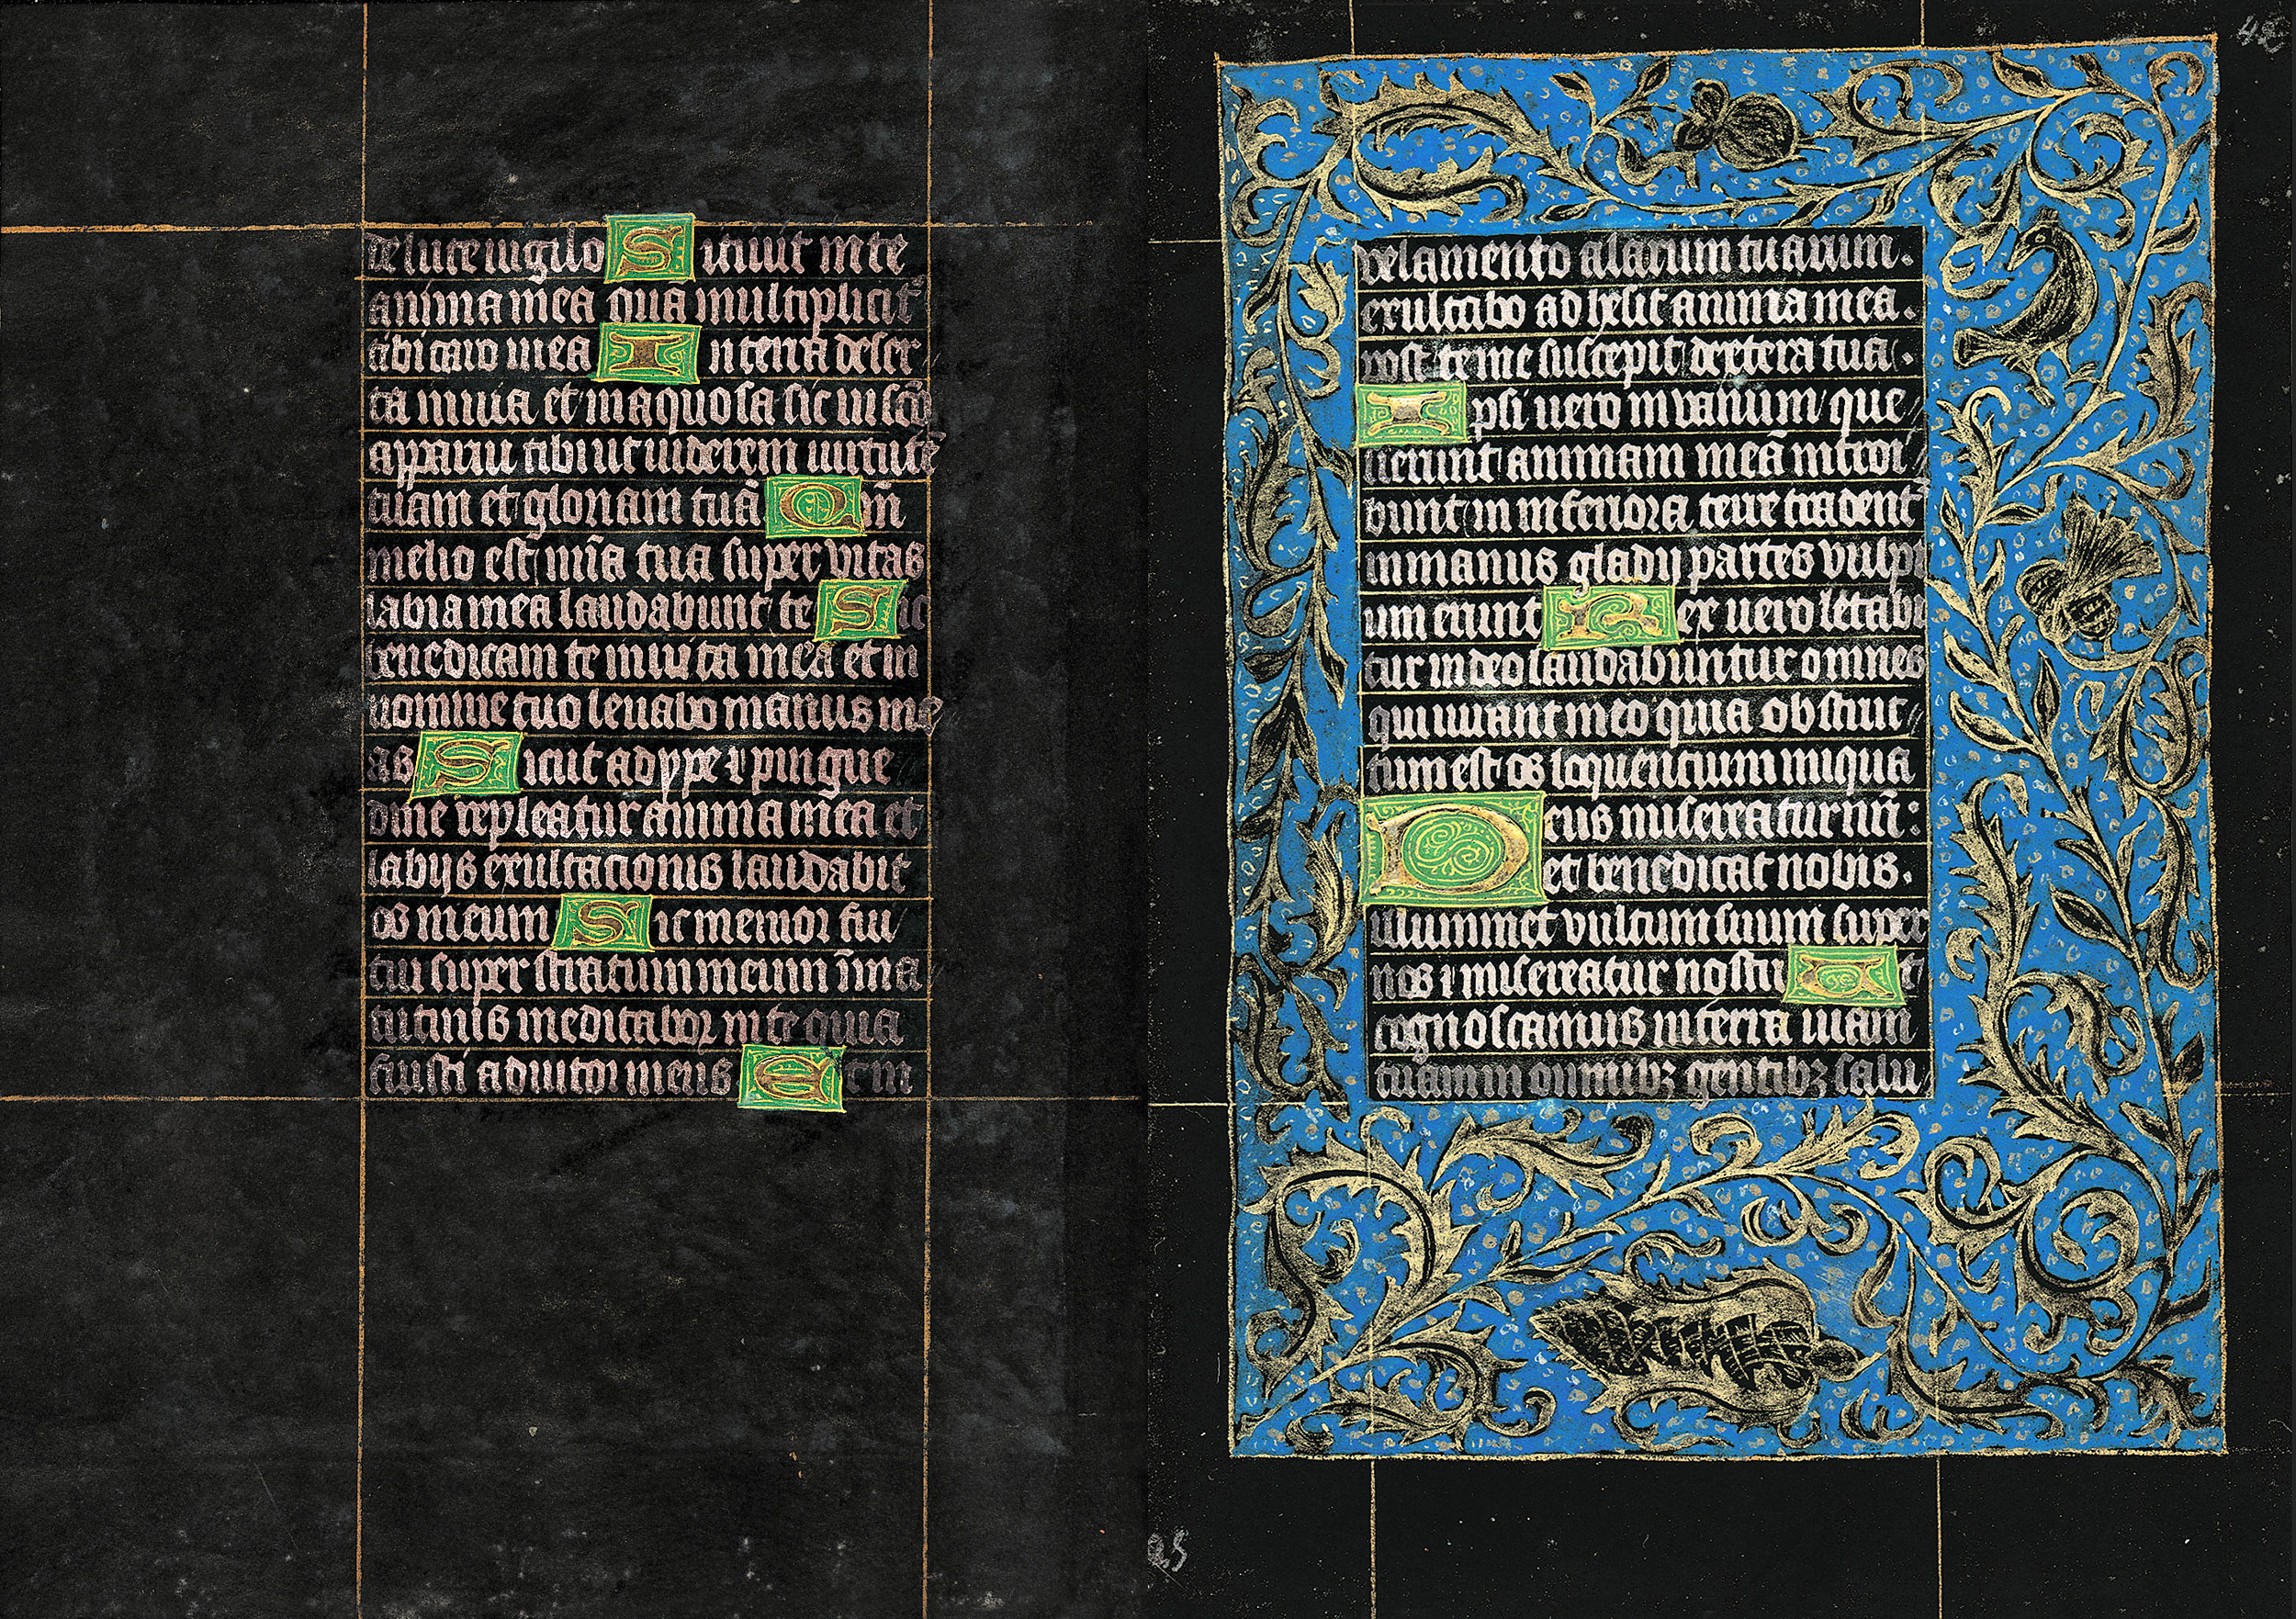 de luce uigilo Sitiuit in te
anima mea quā multiplicit᷑
tibi caro mea In terra deser
ta inuia et inaquosa sic in scō
apparui tibi ut uiderem uirtutē
tuam et gloriam tuā Qm̄
melio est mīa tua super vitas
labia mea laudabunt te Sic
benedicam te in uita mea et in
nomine tuo leuabo manus me
as Sicut adype ⁊ pingue
dine repleatur anima mea et
labijs exultacionis laudabit
os meum Sic memor fui
tui super stratum meum ī ma
tutinis meditabor in te quia
fuisti adiutor meus Et in
velamento alarum tuarum.
exultabo adhesit anima mea.
post te me suscepit dextera tua.
Ipsi uero in vanum que
sierunt animam meā introi
bunt in inferiora terre tradent᷑
in manus gladij partes vulpi
um erunt Rex uero letabi
tur in deo laudabuntur omnes
qui iurant in eo quia obstruc
tum est os loquencium iniqua
Deus misereatur nr̄i:
et benedicat nobis.
illuminet vultum suum super
nos ⁊ misereatur nostri Ut
cognoscamus in terra uiam
tuam in omnibꝫ gentibꝫ salu
42